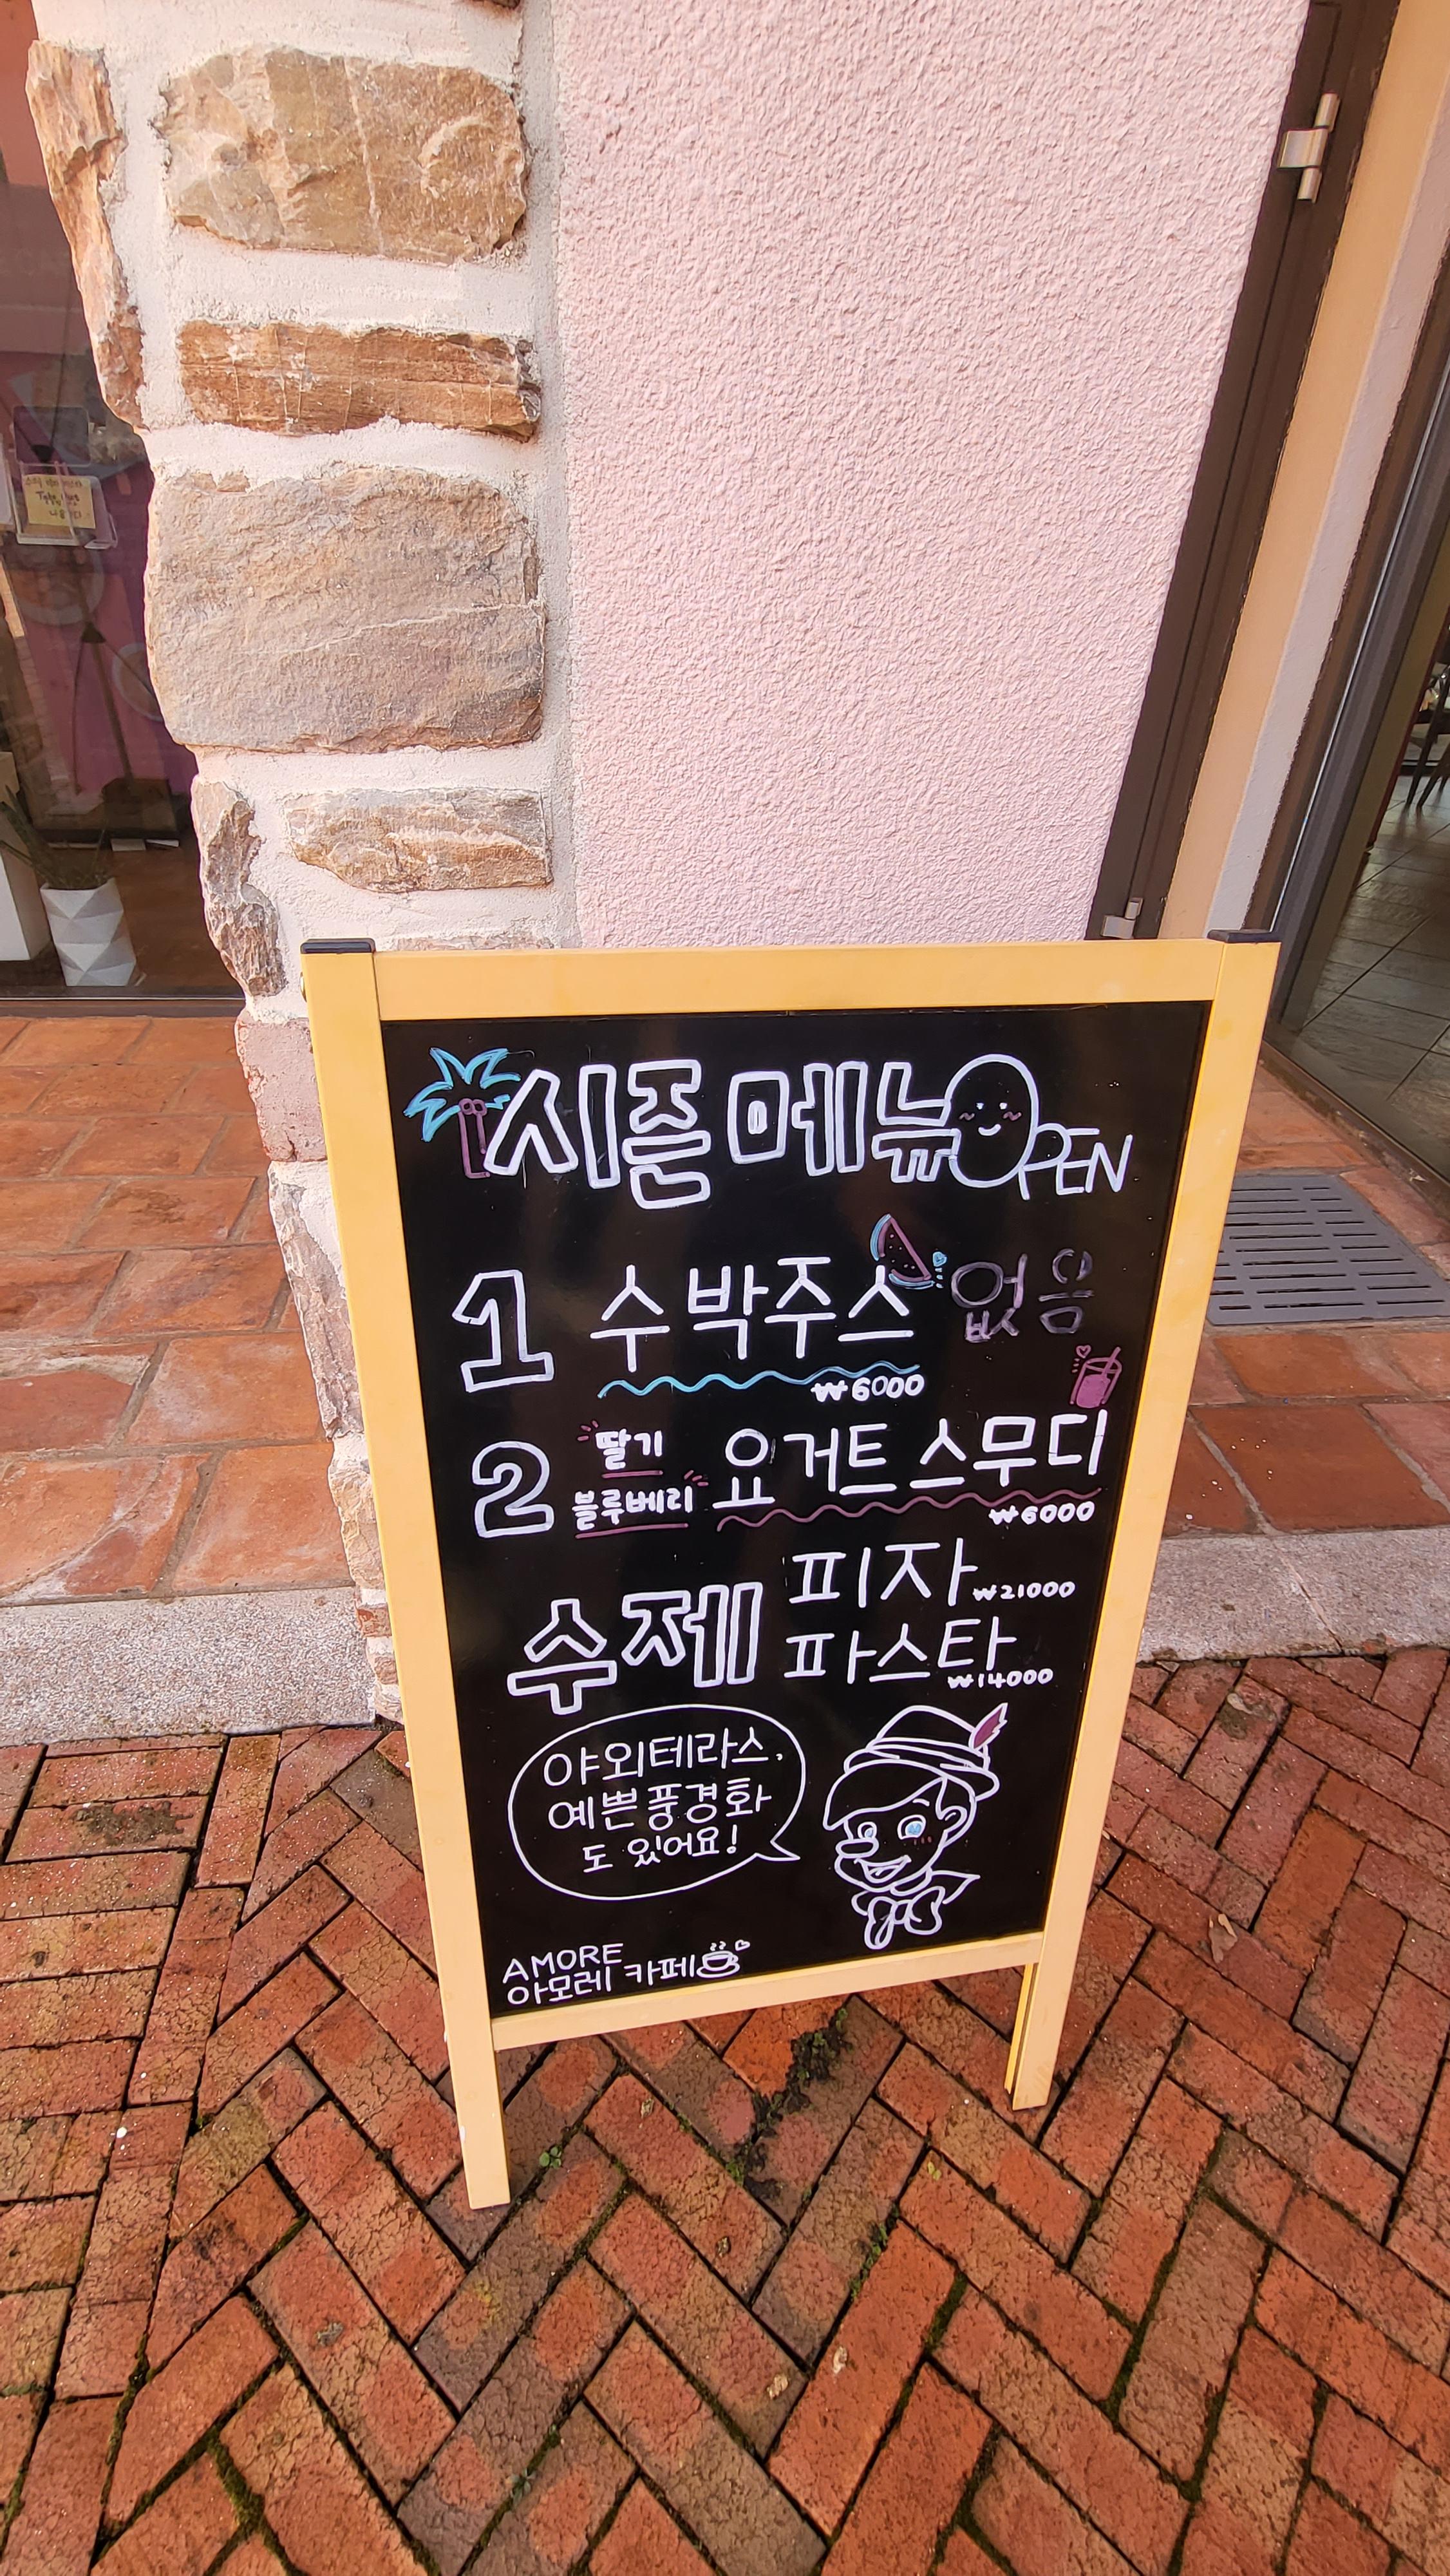 시즌 메뉴 OPEN
1 수박주스 없음
₩6000
2 딸기 블루베리 요거트 스무디
₩6000
수제 피자 ₩21000
파스타 ₩14000
야외테라스,
예쁜 풍경화
도 있어요!
AMORE
아모레 카페